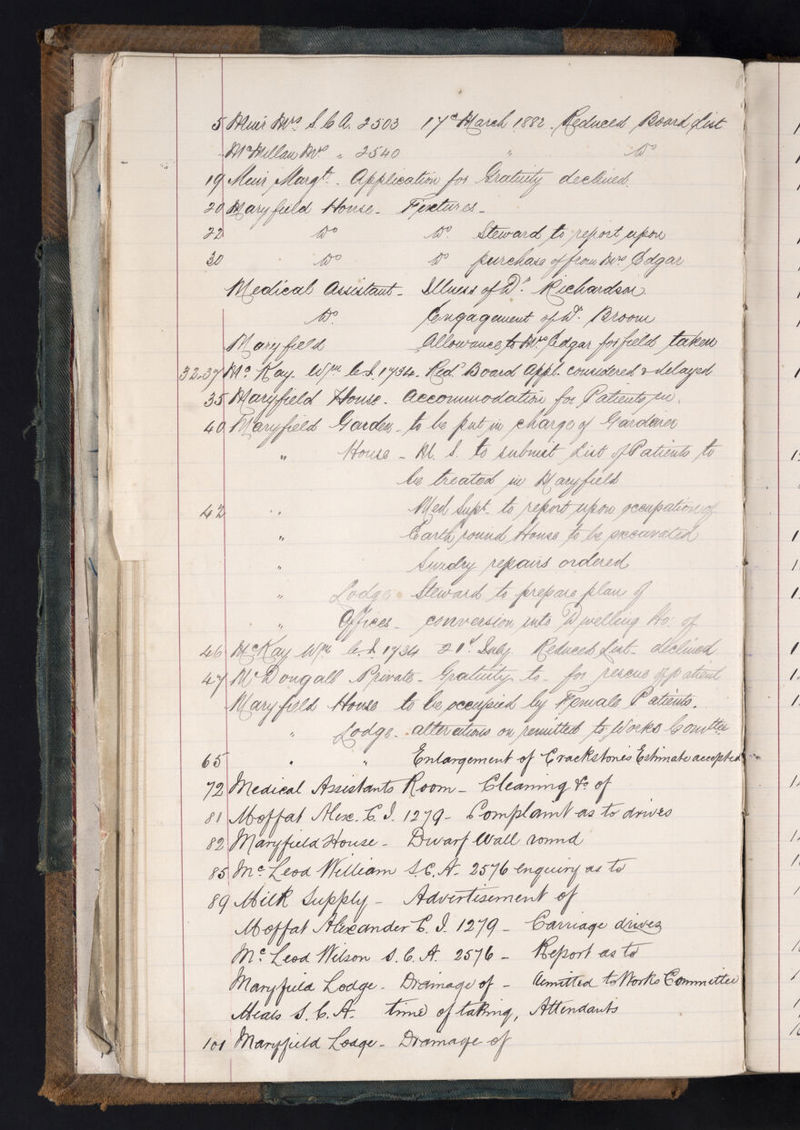 5 Muir Mrs S.C.A. 2503 17th March 1882. Reduced Board List
McMillan Mrs " 2540 " Do
19 Muir Margt. Application for Gratuity declined.
20 Maryfield House - Fixtures -
22 Do Do Steward to report upon
30 Do Do purchase of from Mrs Edgar
Medical Assistant - Illness of Dr. Richardson
Do. Engagement of Dr. Broom
Maryfield Allowance to Mrs Edgar for field taken
32.37 McKay Wm C.I. 1734 - Redd Board Appl. considered & delayed
35 Maryfield House - Accommodation for Patients in.
40 Maryfield Garden - to be put in charge of Gardener
" House - M. S. to submit List of Patients to
be treated in Maryfield
42 " Med. Supt. to report upon occupation of
" Earth round House to be excavated
" Sundry repairs ordered
" Lodge - Steward to prepare plan of
" Offices - conversion into Dwelling Ho: of
46 McKay Wm C.I. 1734 21st July Reduced List - declined
47 McDougall Private - Gratuity to - for rescue of patient
Maryfield House to be occupied by Female Patients.
" Lodge - alterations on remitted to Works Comttee
65 " " Enlargement of Crackstones Estimate accepted
72 Medical Assistants Room - Cleaning &c of
81 Moffat Alex. C.I. 1279 - Complaint as to drives
82 Maryfield House - Dwarf Wall round
85 Mc.Leod William S.C.A. 2576 enquiry as to
89 Milk Supply - Advertisement of
Moffat Alexander C.I. 1279 - Carriage drives
Mc.Leod Wilson S.C.A. 2576 - Report as to
Maryfield Lodge - Drainage of - remitted to Works Committee
Meals S.C.A. time of taking, Attendants
101 Maryfield Lodge - Drainage of